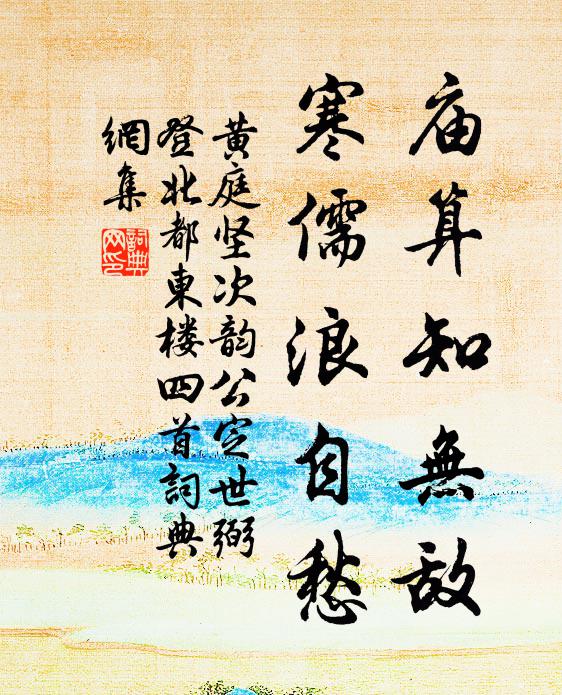 庙算知無敌
寒儒浪自愁
黄庭坚次韵公定世弼
登北都東楼四首詞典
網集
詞典
网印